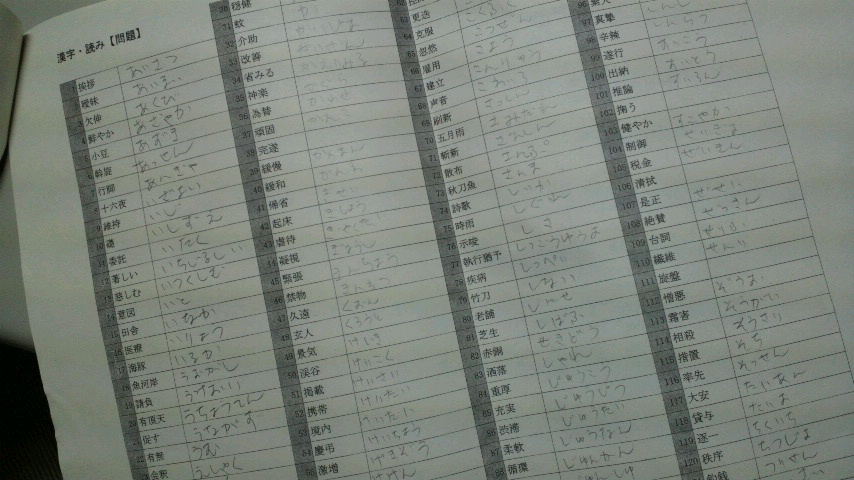 漢字・読み【問題】
1 挨拶 あいさつ
2 曖昧 あいまい
3 欠伸 あくび
4 鮮やか あざやか
5 小豆 あずき
6 斡旋 あっせん
7 行脚 あんぎゃ
8 十六夜 いざよい
9 維持 いじ
10 礎 いしずえ
11 委託 いたく
12 著しい いちじるしい
13 慈しむ いつくしむ
14 意図 いと
15 田舎 いなか
16 医療 いりょう
17 海豚 いるか
18 魚河岸 うおがし
19 請負 うけおい
20 有頂天 うちょうてん
21 促す うながす
22 有無 うむ
23 会釈 えしゃく
30 穏健
31 蚊 か
32 介助 かいじょ
33 改善 かいぜん
34 省みる かえりみる
35 神楽
36 為替 かわせ
37 頑固
38 完遂
39 緩慢 かんまん
40 緩和 かんわ
41 帰省 きせい
42 起床 きしょう
43 虐待 ぎゃくたい
44 凝視 ぎょうし
45 緊張 きんちょう
46 禁物 きんもつ
47 久遠 くおん
48 玄人 くろうと
49 景気 けいき
50 渓谷 けいこく
51 掲載 けいさい
52 携帯 けいたい
53 境内 けいだい
54 慶弔 けいちょう
55 激増 げきぞう
63 更迭
64 克服 こくふく
65 忽然 こつぜん
66 雇用 こよう
67 建立 こんりゅう
68 声音 こわいろ
69 刷新 さっしん
70 五月雨 さみだれ
71 斬新 ざんしん
72 散布 さんぷ
73 秋刀魚 さんま
74 詩歌 しいか
75 時雨 しぐれ
76 示唆 しさ
77 執行猶予 しっこうゆうよ
78 疾病 しっぺい
79 竹刀 しない
80 老舗 しにせ
81 芝生 しばふ
82 赤銅 せきどう
83 洒落 しゃれ
84 重厚 じゅうこう
85 充実 じゅうじつ
86 渋滞 じゅうたい
87 柔軟 じゅうなん
88 循環 じゅんかん
96 素人
97 真摯 しんし
98 辛辣 しんらつ
99 遂行 すいこう
100 出納 すいとう
101 推論 すいろん
102 掬う
103 健やか すこやか
104 制御 せいぎょ
105 税金 ぜいきん
106 清拭
107 是正 ぜせい
108 絶賛 ぜっさん
109 台詞 せりふ
110 繊維 せんい
111 旋盤
112 憎悪 ぞうお
113 霜害 そうがい
114 相殺 そうさい
115 措置 そち
116 率先 そっせん
117 大安 たいあん
118 貸与 たいよ
119 逐一 ちくいち
120 秩序 ちつじょ
釣銭 つりせん